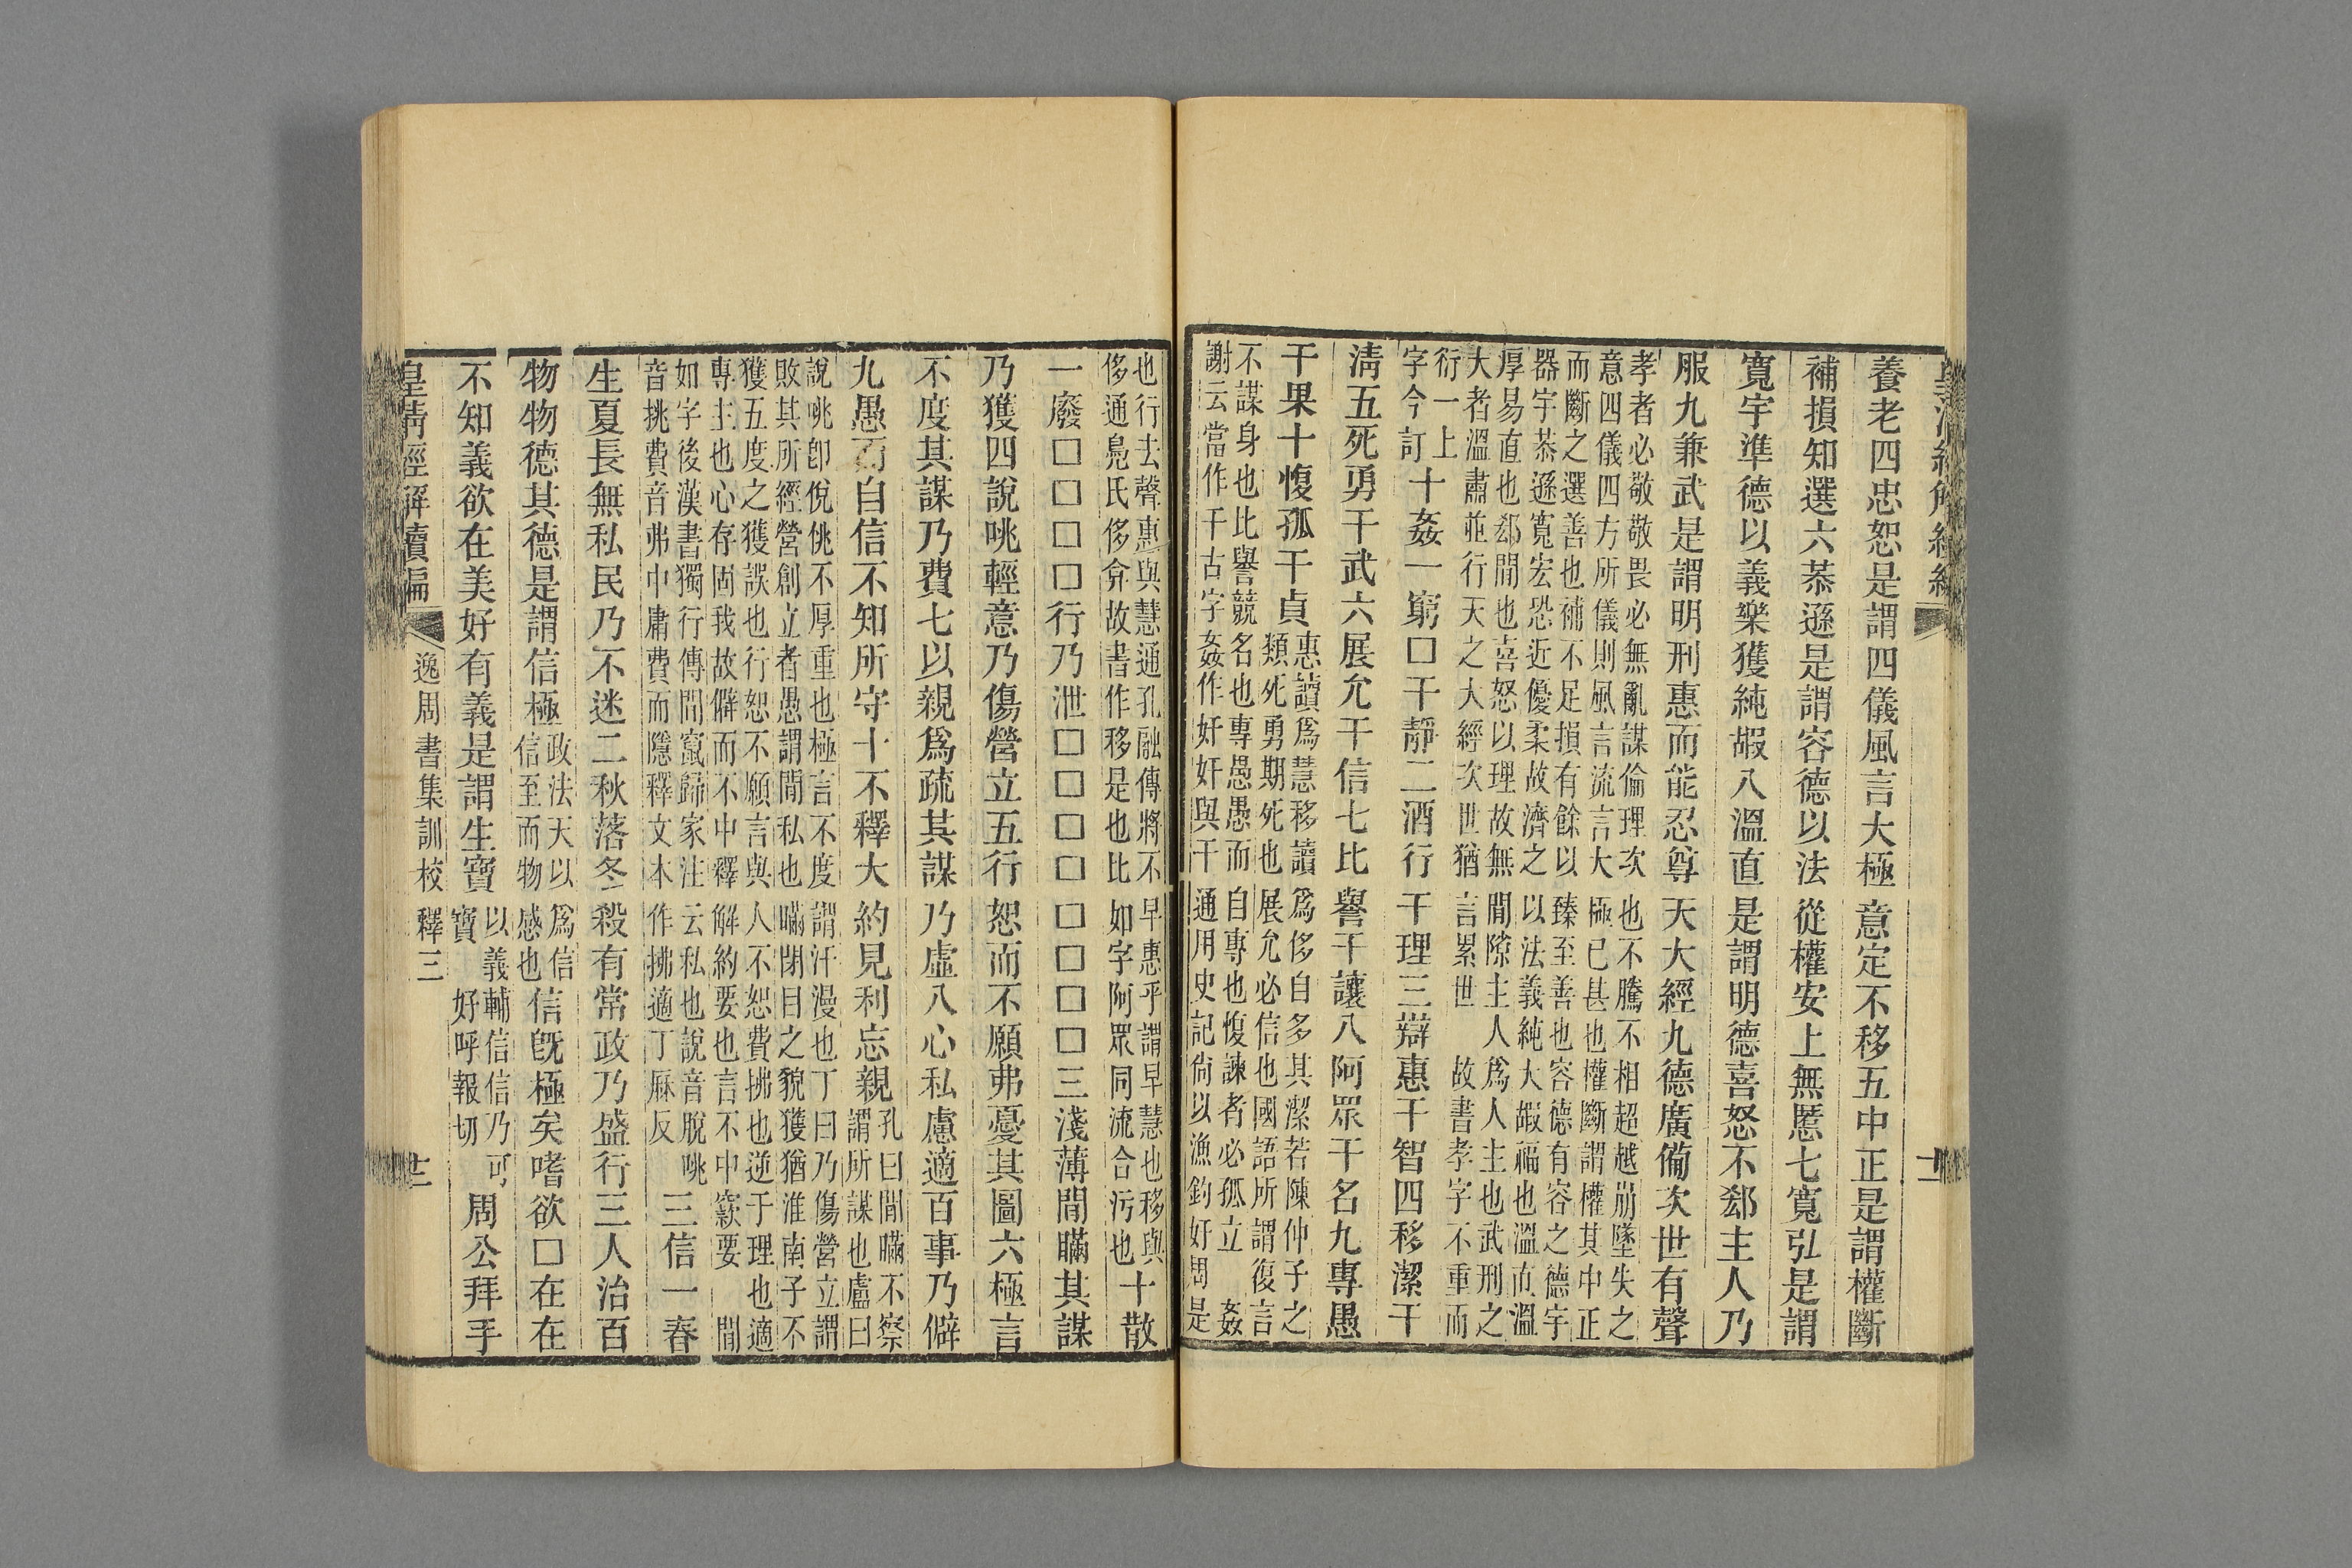 養老四忠恕是謂四儀風言大極意定不移五中正是謂權斷
補損知選六恭遜是謂容德以法從權安上無慝七寬弘是謂
寬宇準德以義樂獲純嘏八溫直是謂明德喜怒不郄主人乃
服九兼武是謂明刑惠而能忍尊天大經九德廣備次世有聲
孝者必敬敬畏必無亂謀倫理次也不騰不相超越崩墜失之
意四儀四方所儀則風言流言大極已甚也權斷謂權其中正
而斷之選善也補不足損有餘以臻至善也容德有容之德宇
器宇恭遜寬宏恐近優柔故濟之以法義純大嘏福也溫直溫
厚易直也郄閒也喜怒以理故無閒隙主人爲人主也武刑之
大者溫肅並行天之大經次世猶言累世 故書孝字不重而
衍一上
字今訂
十姦一窮□干靜二酒行干理三辯惠干智四移潔干
清五死勇干武六展允干信七比譽干讓八阿眾干名九專愚
干果十愎孤干貞
惠讀爲慧移讀爲侈自多其潔若陳仲子之
類死勇期死也展允必信也國語所謂復言
不謀身也比譽競名也專愚愚而自專也愎諫者必孤立 姦
謝云當作干古字姦作奸奸與干通用史記尙以漁釣奸周是
也行去聲惠與慧通孔融傳將不早惠乎謂早慧也移與
侈通鳧氏侈弇故書作移是也比如字阿眾同流合污也
十散
一廢□□□□行乃泄□□□□□□□□三淺薄閒瞞其謀
乃獲四說咷輕意乃傷營立五行恕而不願弗憂其圖六極言
不度其謀乃費七以親爲疏其謀乃虛八心私慮適百事乃僻
九愚而自信不知所守十不釋大約見利忘親
孔曰閒瞞不察
謂所謀也盧曰
說咷卽侻佻不厚重也極言不度謂汗漫也丁曰乃傷營立謂
敗其所經營創立者愚謂閒私也瞞閉目之貌獲猶淮南子不
獲五度之獲誤也行恕不願言與人不恕費拂也逆于理也適
專主也心存固我故僻而不中釋解約要也言不中窾要 閒
如字後漢書獨行傳閒竄歸家注云私也說音脫咷
音挑費音弗中庸費而隱釋文本作拂適丁厤反
三信一春
生夏長無私民乃不迷二秋落冬殺有常政乃盛行三人治百
物物德其德是謂信極
政法天以爲信
信至而物感也
信旣極矣嗜欲□在在
不知義欲在美好有義是謂生寶
以義輔信信乃可
寶 好呼報切
周公拜手
皇清經解續編 逸周書集訓校釋三